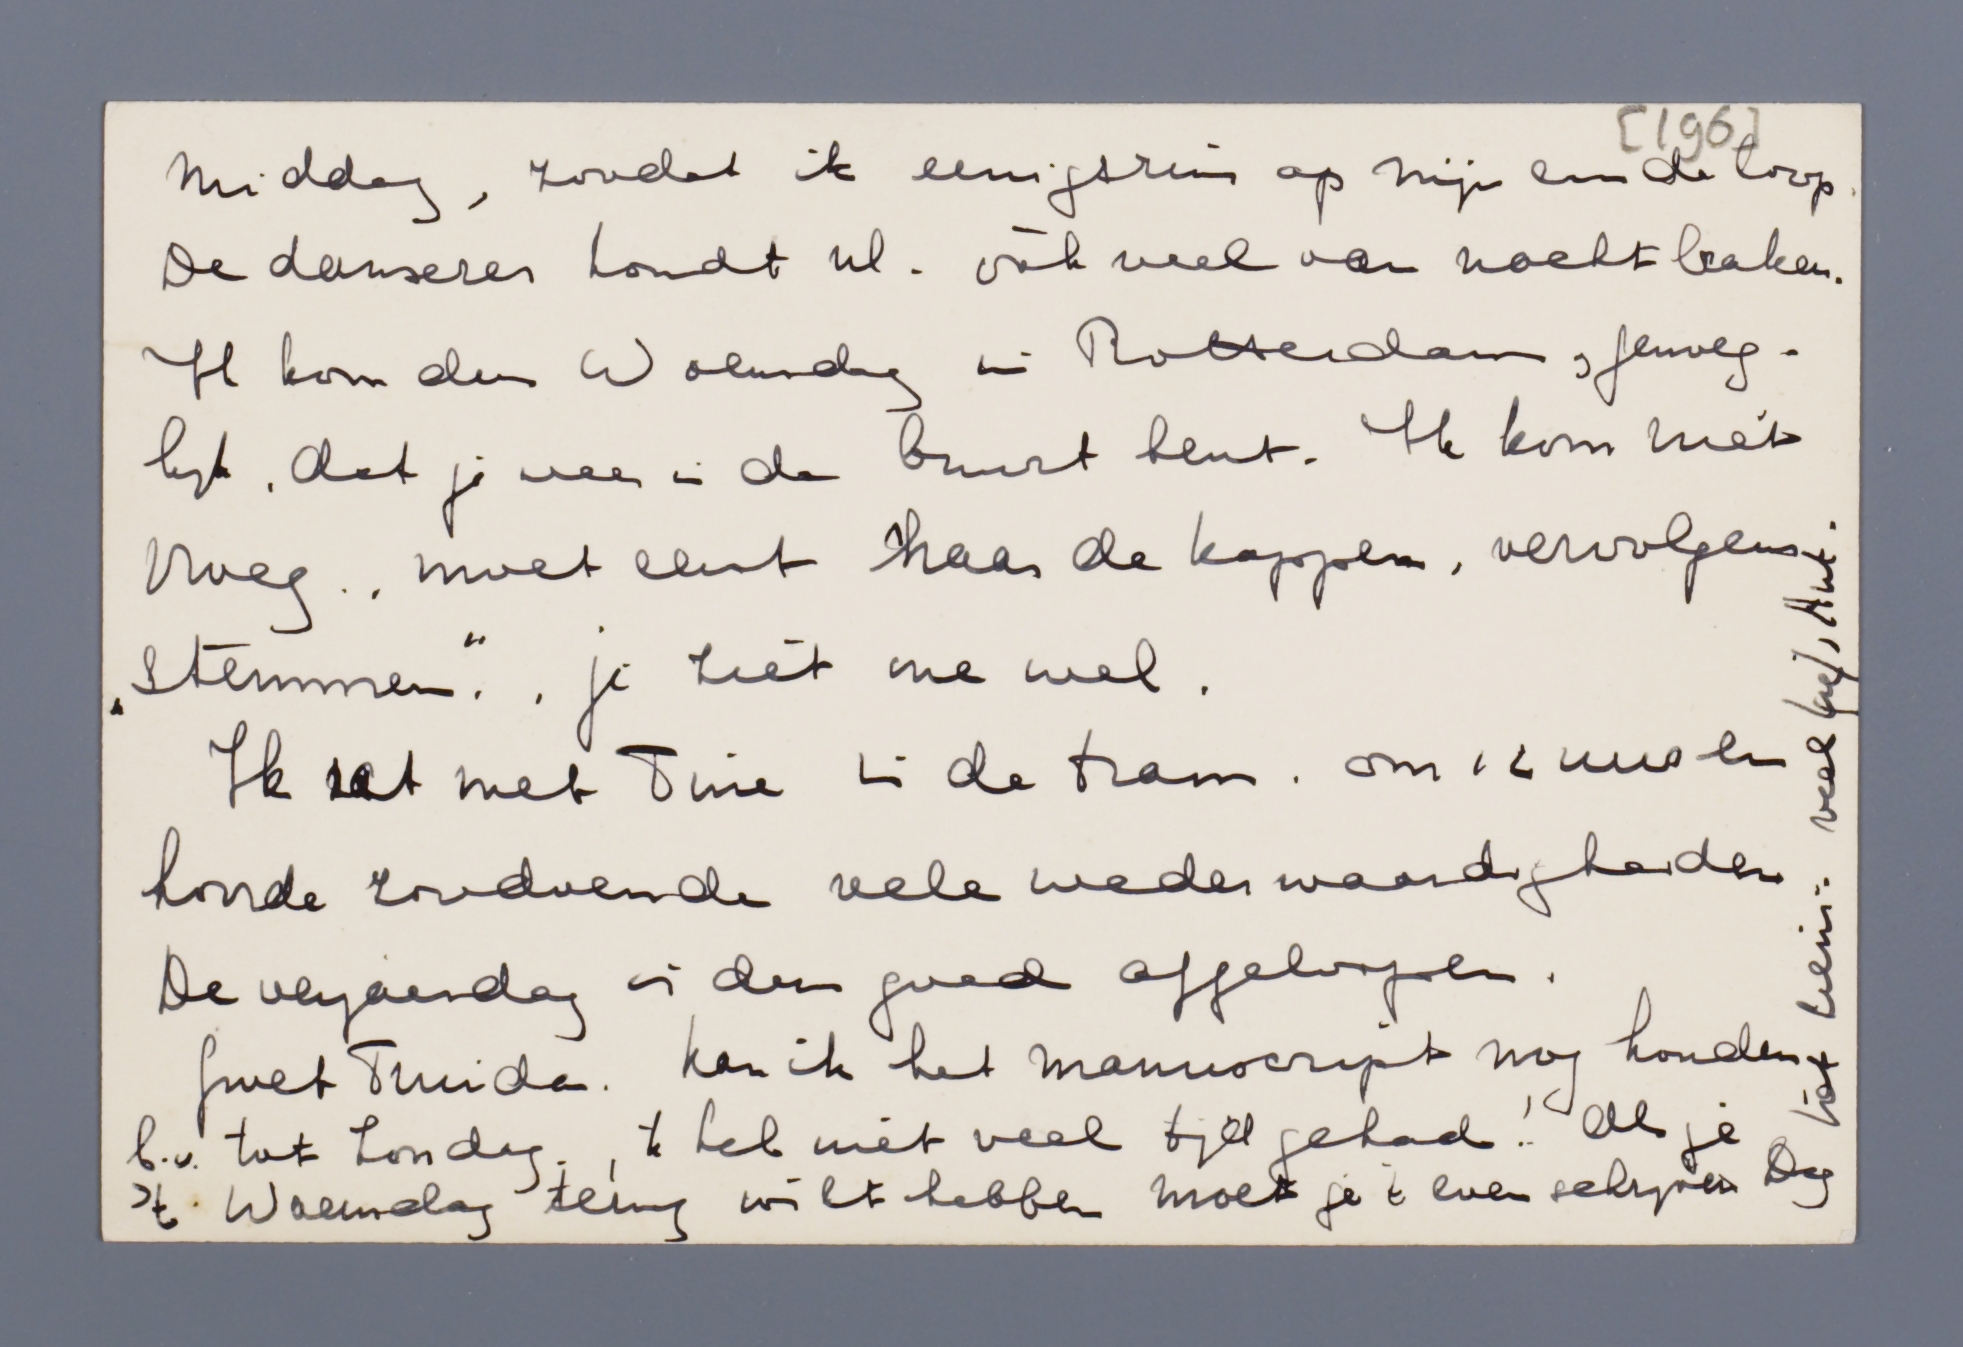 [196]
middag, zoodat ik eenigszins op mijn einde loop.
De danseres houdt nl. óók veel van nachtbraken.
Ik kom dus Woensdag in Rotterdam, genoeg-
lijk, dat je weer in de buurt bent. Ik kom niet
vroeg., moet eerst Haar de kappen, vervolgens
„stemmen”., je ziet me wel.
Ik zat met Tine in de tram. om 12 uur en
hoorde zoodoende vele wederwaardigheden.
De verjaardag is dus goed afgeloopen.
Groet Truida. Kan ik het manuscript nog houden
b.v. tot Zondag., 'k heb niet veel tijd gehad! Als je
't Woensdag terug wilt hebben moet je 't even schrijven Dag
tot ziens: veel liefs, Ant.